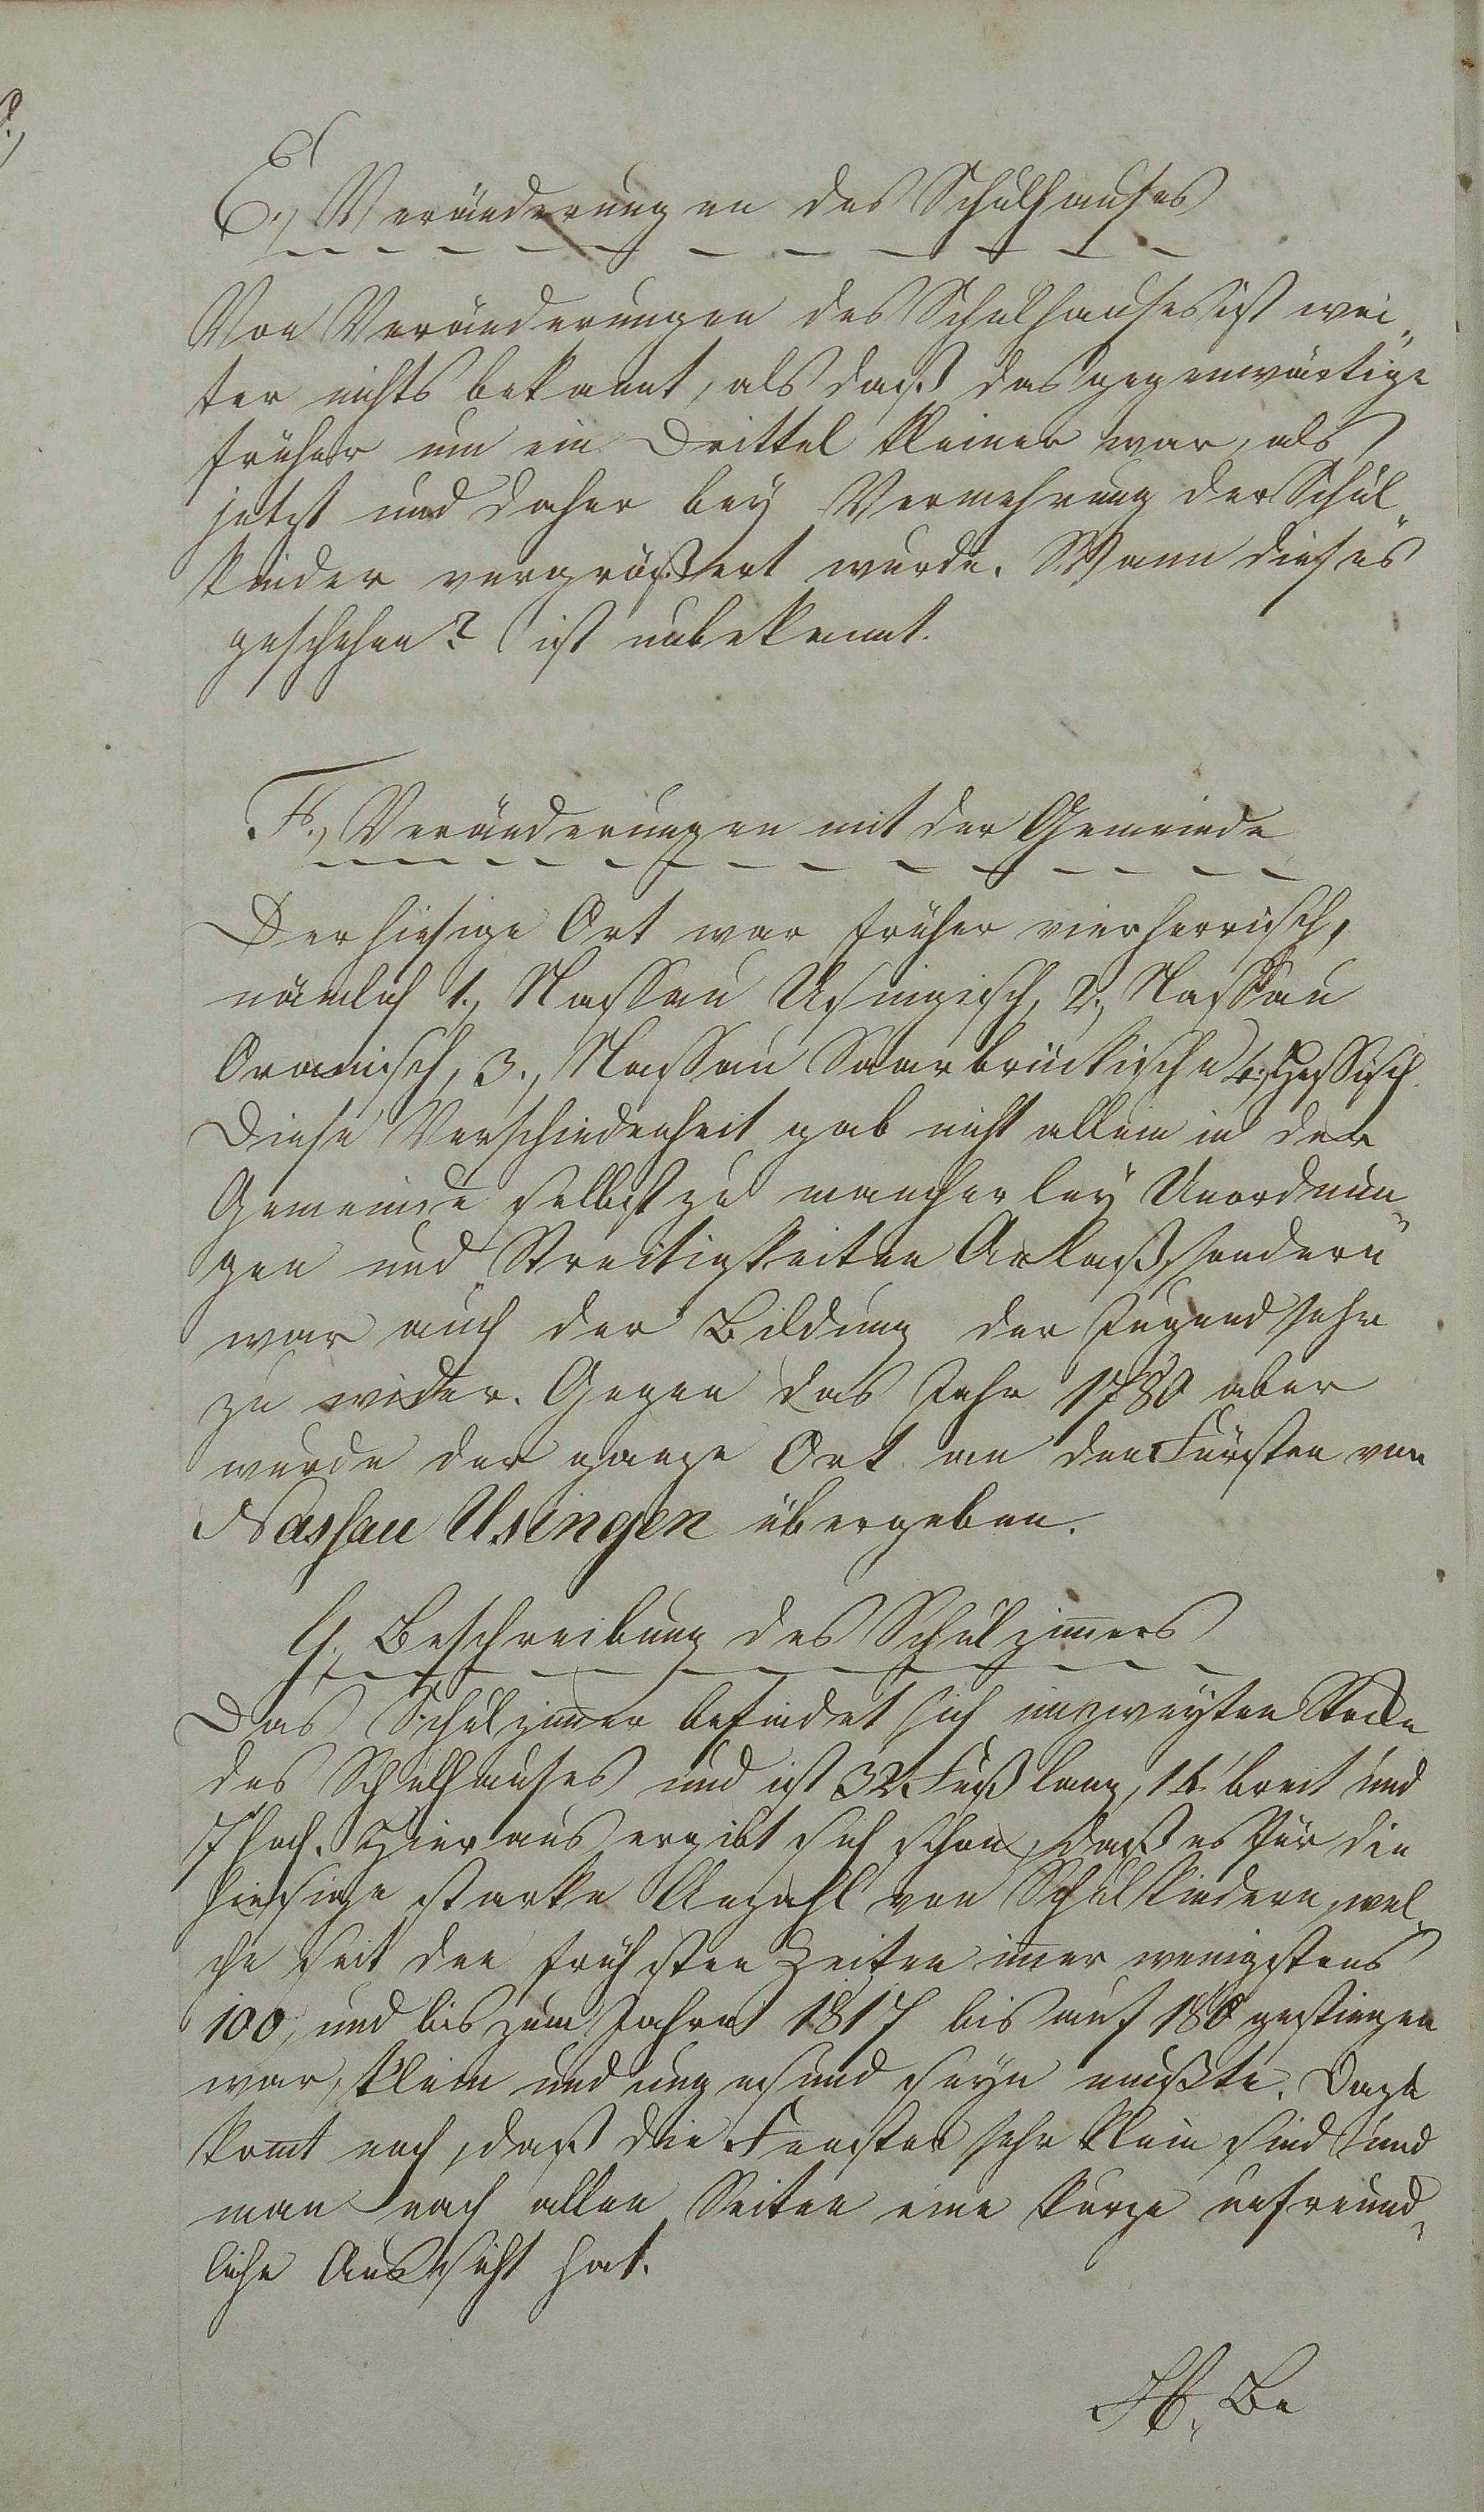 E., Veränderungen des Schulhauses
Von Veränderungen des Schulhauses ist wei„
ter nichts bekannt, als daß das gegenwärtige
früher um ein Drittel kleiner war, als
jetzt und daher bey Vermehrung der Schul„
kinder vergrößert wurde. Wann dieses
geschehen? ist unbekannt.
F., Veränderungen mit der Gemeinde
Der hiesige Ort war früher vierherrisch,
nämlich 1., Nassau Usingisch, 2., Nassau
Oranisch, 3., Nassau Saarbrückisch u 4., Hessisch.
Diese Verschiedenheit gab nicht allein in der
Gemeinde selbst zu mancherley Unordnun„
gen und Streitigkeiten Anlaß, sondern
war auch der Bildung der Jugend sehr
zu wider. Gegen das Jahr 1780 aber
wurde der ganze Ort an den Fürsten von
Nassau Usingen übergeben.
G., Beschreibung des Schulzim̅ers
Das Schulzim̅er befindet sich im zweyten Stocke
des Schulhauses und ist 32 Fuß lang, 16' breit und
7' hoch. Hieraus ergibt sich schon, daß es für die
hiesige starke Anzahl von Schulkindern, wel„
che seit den frühsten Zeiten im̅er wenigstens
100, und bis zum Jahre 1817 bis auf 180 gestiegen
war, klein und ungesund seyn mußte. Dazu
kom̅t noch, daß die Fenster sehr klein sind und
man nach allen Seiten eine kurze unfreund„
liche Aussicht hat.
H., Be